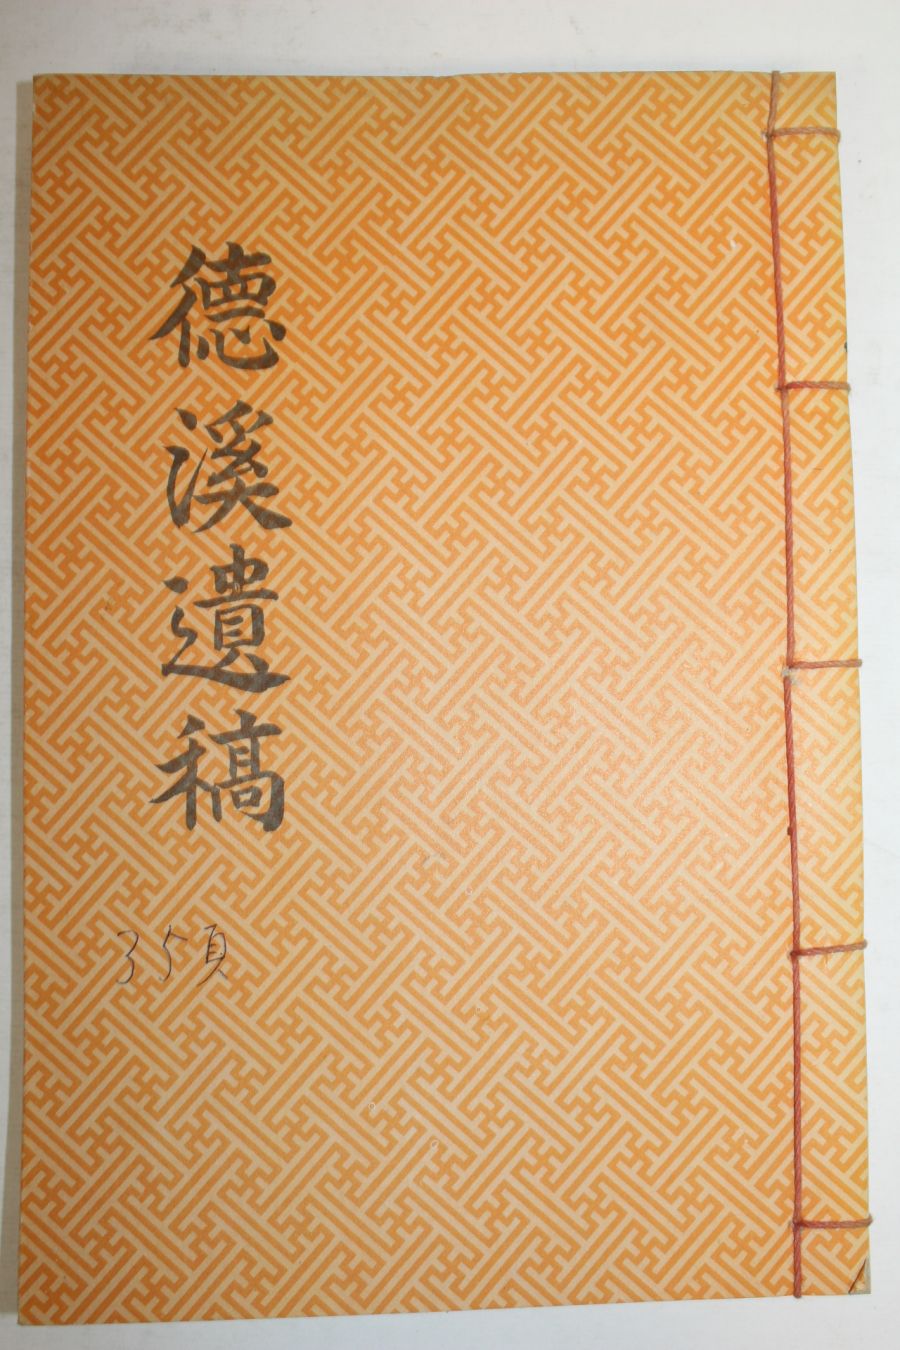 德溪遺稿
35頁